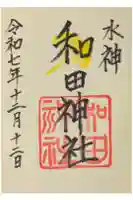 水神
和田神社
令和七年十二月十二日